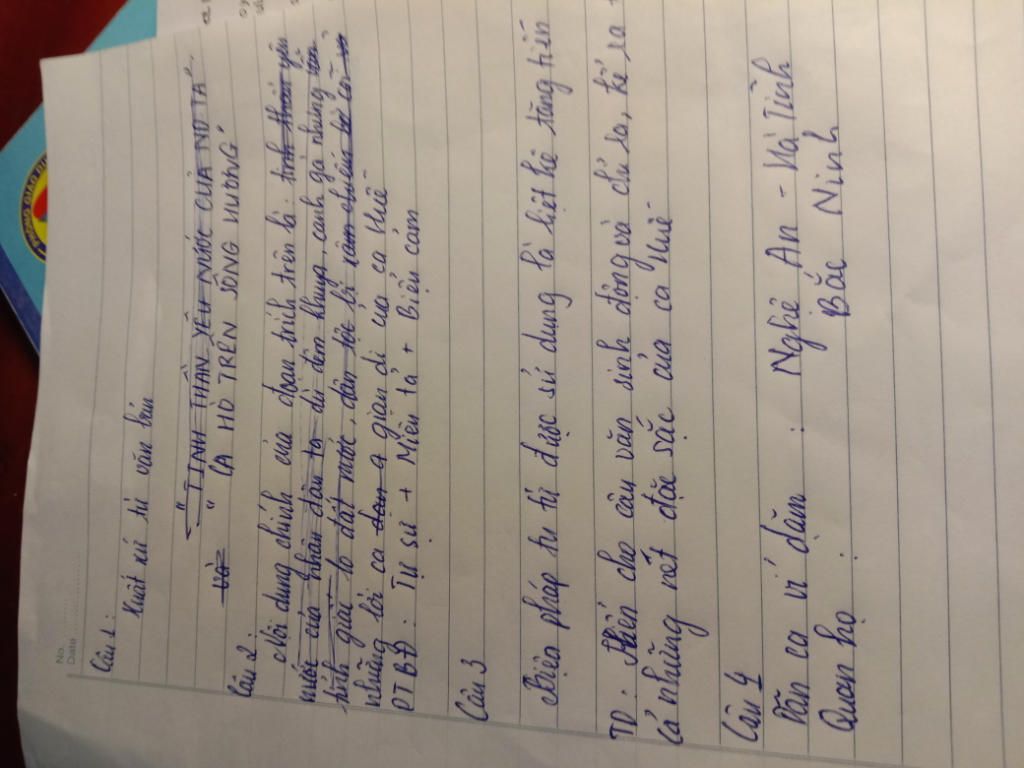 No.
Date
Câu 1:
Xuất xứ từ văn bản
" TINH THẦN YÊU NƯỚC CỦA ND TA "
Và " CA HÒ TRÊN SÔNG HƯƠNG"
Câu 2:
Nội dung chính của đoạn trích trên là: tinh thần yêu
nước của nhân dân ta
bình giữa to đất nước, dân tộc bị xâm chiếm bờ cõi
những lời ca giản dị va ca Huế
PTBĐ: Tự sự + Miên tả + Biểu cảm
Câu 3
Biện pháp tu từ được sử dụng là liệt kê tăng tiến
TD: Khiến cho câu văn sinh động và chỉ ra, kể ra +
cả những nét đặc sắc của ca Huế
Câu 4
Dân ca ví dặm : Nghệ An - Hà Tĩnh
Quan họ : Bắc Ninh